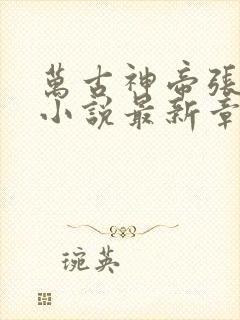 萬古神帝張
小說最新章
琬英